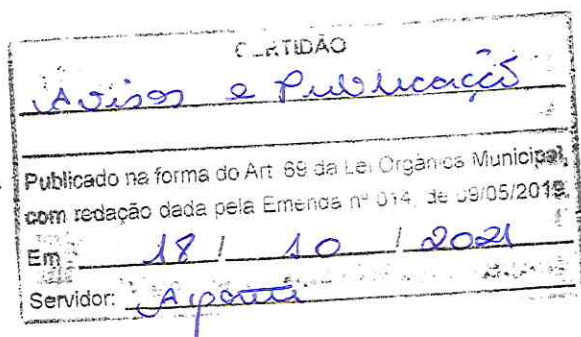 CERTIDÃO
Avisos e Publicação
Publicado na forma do Art. 69 da Lei Orgânica Municipal,
com redação dada pela Emenda nº 014, de 09/05/2019.
Em 18 / 10 / 2021
Servidor: